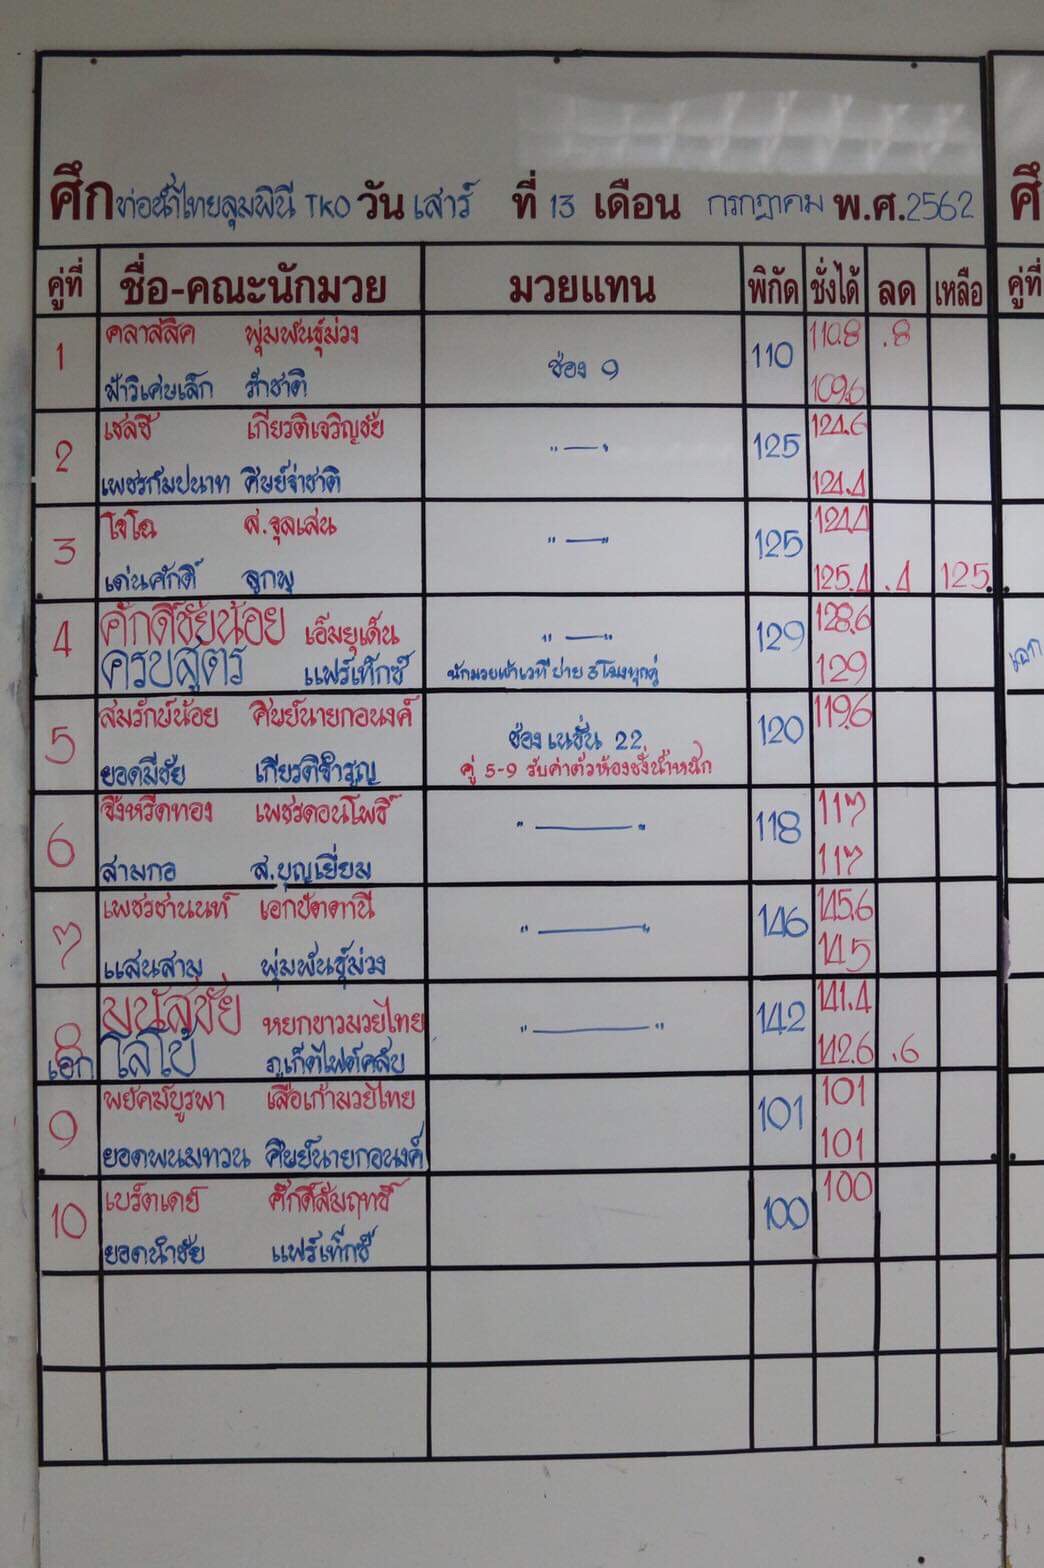 ศึกท่อน้ำไทยลุมพินี TKO วันเสาร์ ที่ 13 เดือน กรกฎาคม พ.ศ.2562
ศึ
คู่ที่ ชื่อ-คณะนักมวย มวยแทน พิกัด ชั่งได้ ลด เหลือ
คู่ที่
1 คลาสสิค พุ่มพันธุ์ม่วง ช่อง 9 110 110.8 .8
ฟ้าวิเศษเล็ก ร่ำชาติ 109.6
2 เชลซี เกียรติเจริญชัย "—" 125 124.6
เพชรกัมปนาท ศิษย์จ่าชาติ 124.4
3 โจโฉ ส.จุลเสน "—" 125 124.4
เด่นศักดิ์ ลูกพู 125.4 .4 125
4 ศักดิ์ชัยน้อย เอ็มยุเด็น "—" 129 128.6
ครบสูตร แฟร์เท็กซ์ นักมวยเข้าเวที บ่าย 3 โมงทุกคู่ 129
เอก
5 สมรักษ์น้อย ศิษย์นายกอนงค์ ช่อง เนชั่น 22 120 119.6
ยอดมีชัย เกียรติจำรูญ คู่ 5-9 รับค่าตัวห้องชั่งน้ำหนัก
6 จิ้งหรีดทอง เพชรดอนโพธิ์ "—" 118 117
สามกอ ส.บุญเยี่ยม 117
7 เพชรชานนท์ เอกปัตตานี "—" 146 145.6
แสนสามุ พุ่มพันธุ์ม่วง 145
8 มนัสชัย หยกขาวมวยไทย "—" 142 141.4
เอก โลโบ้ ภูเก็ตไฟต์คลับ 142.6 .6
9 พยัคฆ์บูรพา เสือเก้ามวยไทย 101 101
ยอดพนมทวน ศิษย์นายกอนงค์ 101
10 เบร์ดเดย์ ศักดิ์สัมฤทธิ์ 100 100
ยอดนำชัย แฟร์เท็กซ์